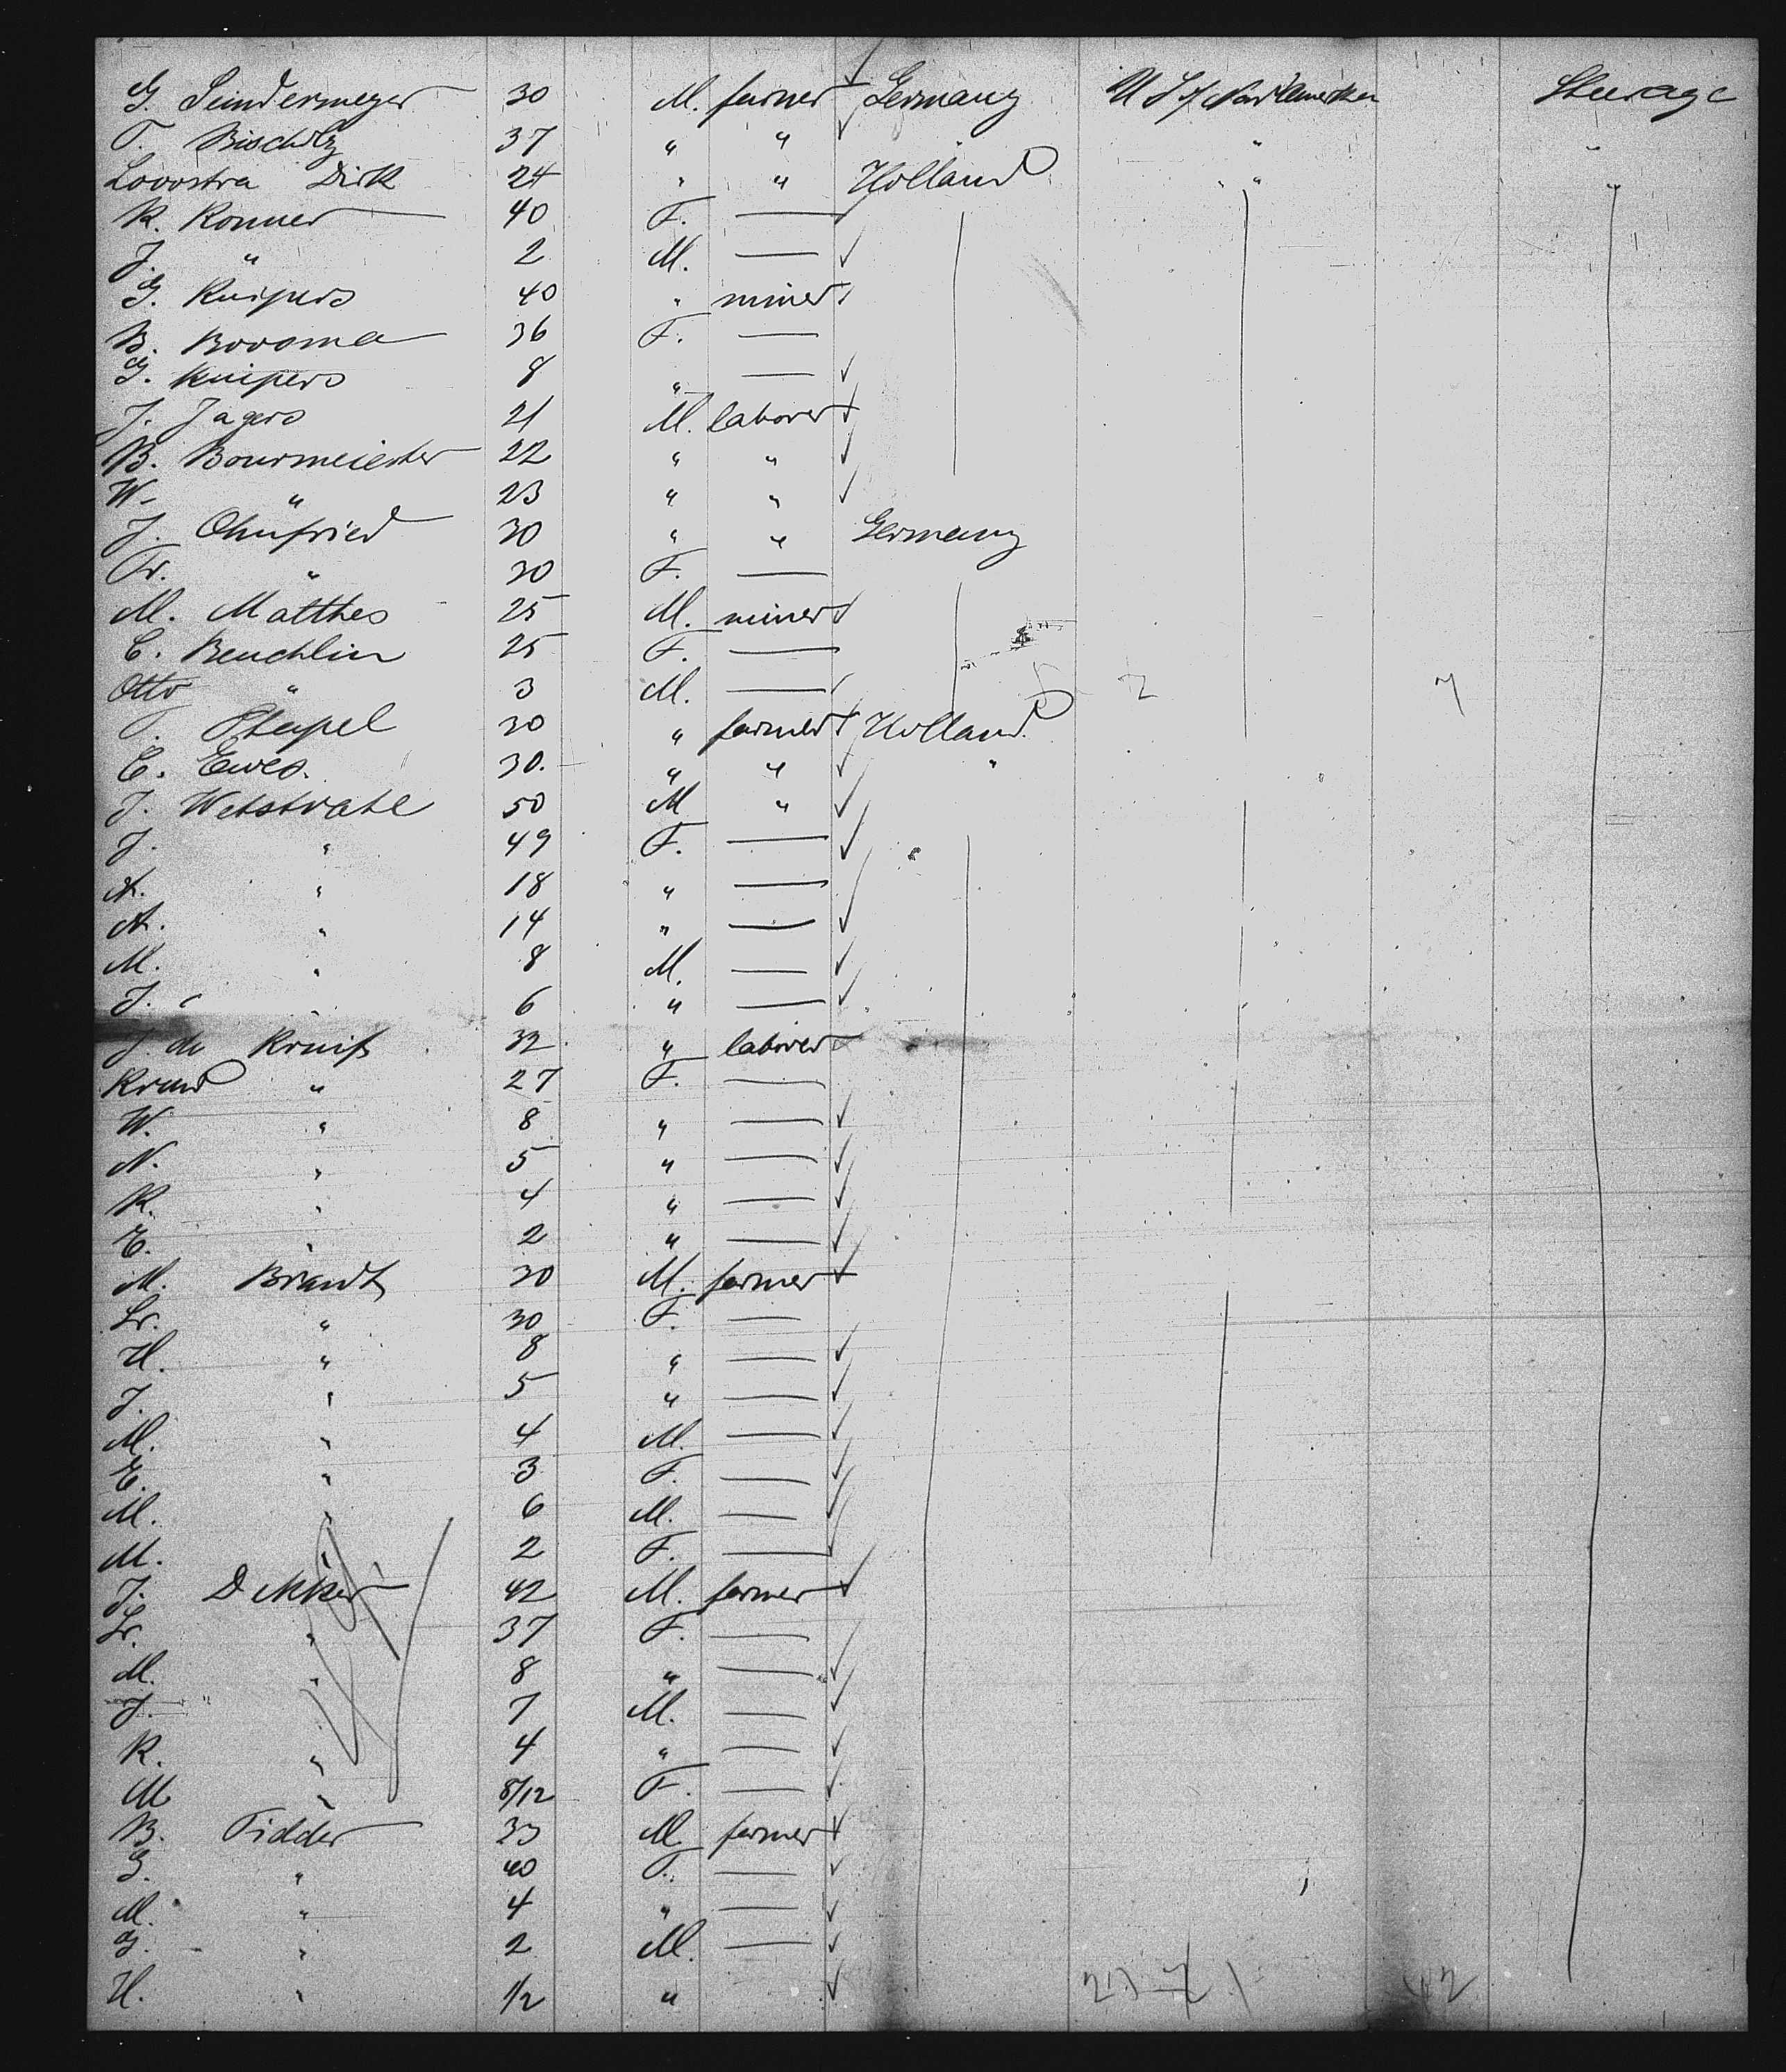 G. Sundermeyer 30 M. farmer Germany U S of Nord Amerika Steerage
T. Bischoly 37 " " "
Lovostra Dirk 24 " " Holland " "
K. Konner 40 F. —
J. " 2 M. —
G. Kuipers 40 " miner
B. Boosma 36 F. —
G. Kuipers 8 " —
J. Jagers 21 M. laborer
B. Bourmeiester 22 " "
W. " 23 " "
J. 30 " " Germany
Fr. " 30 F. —
M. Matthes 25 M. miner
C. Beuchlin 25 F. —
Otto " 3 M. —
T. Stapel 30 " farmer Holland
E. Ewes. 30. " " "
J. Wetstrate 50 M "
J. " 49 F. —
A. " 18 " —
A. " 14 " —
M. " 8 M. —
J. " 6 " —
J. de Kruif 32 " laborer
" 27 F. —
W. " 8 " —
N. " 5 " —
K. " 4 " —
E. " 2 " —
M. Brandt 30 M. farmer
Gr. " 30 F. —
H. " 8 " —
J. " 5 " —
M. " 4 M. —
E. " 3 F. —
M. " 6 M. —
M. " 2 F. —
J. Dekker 42 M. farmer
Gr. " 37 F. —
M. " 8 " —
J. " 7 M. —
K. " 4 " —
M " 8/12 F. —
B. Fidder 33 M farmer
G. " 40 F. —
M. " 4 " —
G. " 2 M. —
H. " 1/2 "